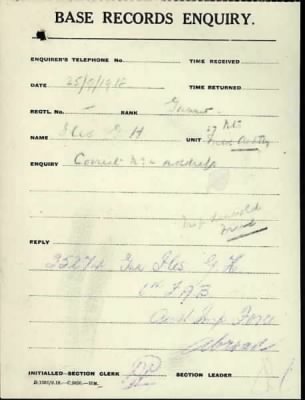 BASE RECORDS ENQUIRY.
ENQUIRER'S TELEPHONE No.
TIME RECEIVED
DATE 25/9/1918
TIME RETURNED
REGTL. No. RANK Gunner
NAME Iles G H UNIT
ENQUIRY Correct No &
REPLY
Gnr Iles G. H.
6th F A B
Aust Imp Force
Abroad
INITIALLED—SECTION CLERK
SECTION LEADER